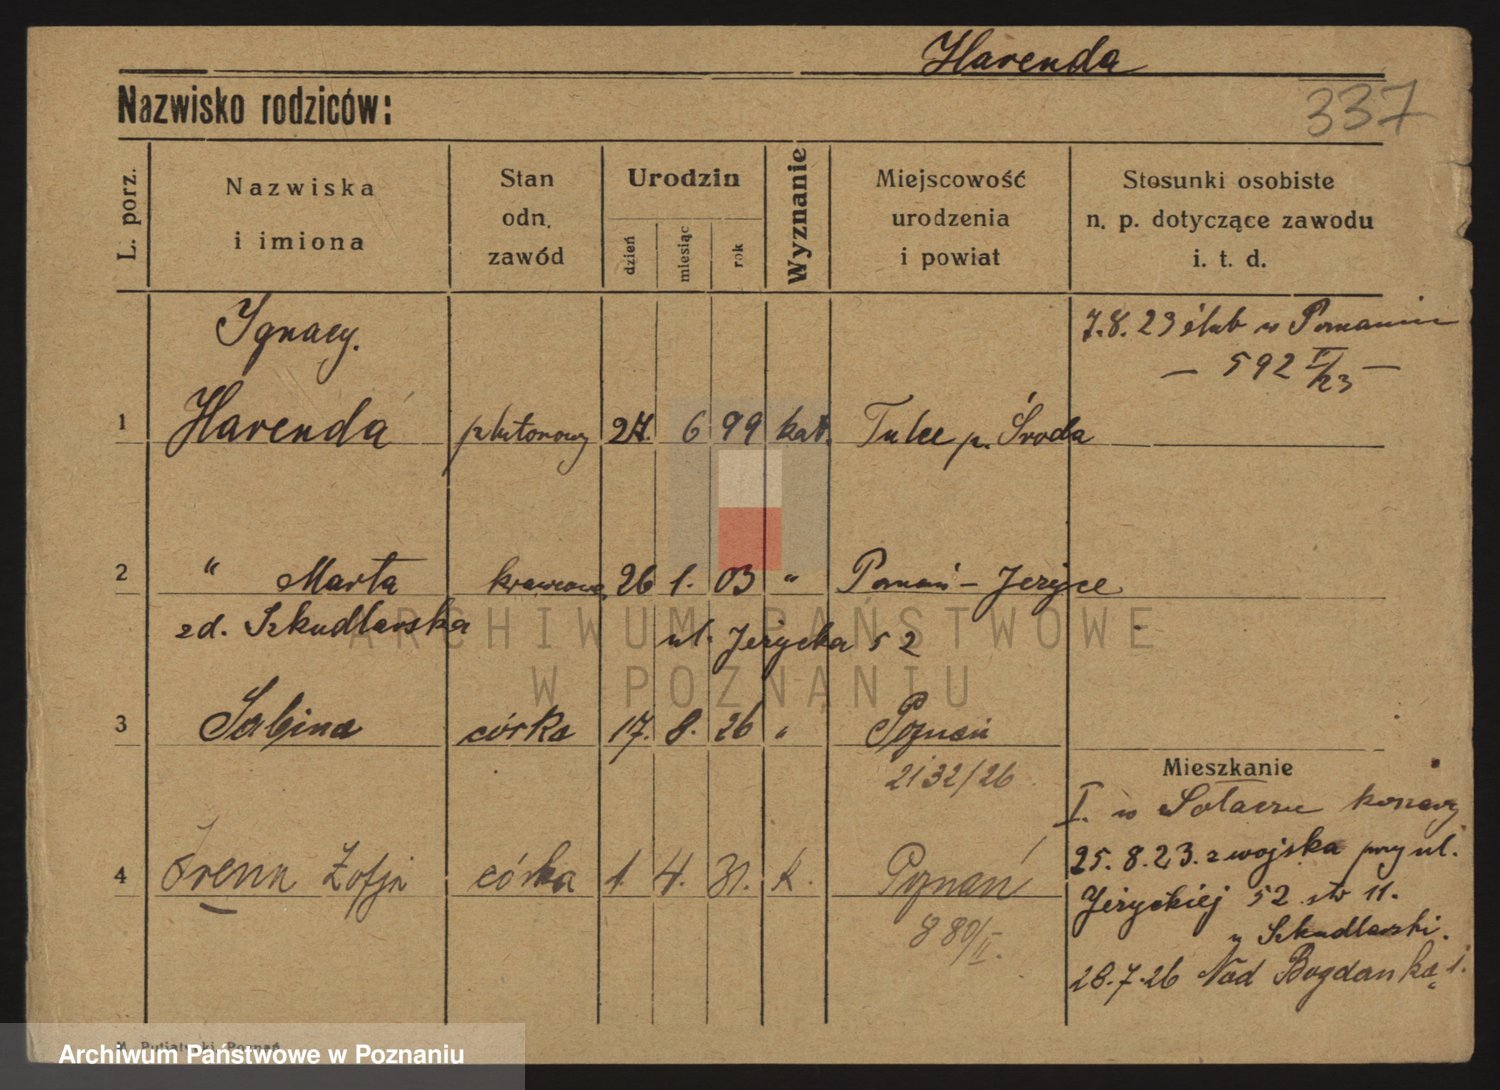 Harenda
337
Nazwisko rodziców:
L. porz.
Nazwiska i imiona
Stan odn. zawód
Urodzin
dzień
miesiąc
rok
Wyznanie
Miejscowość urodzenia i powiat
Stosunki osobiste n. p. dotyczące zawodu i. t. d.
Ignacy
7.8.23 ślub w Poznaniu
— 592 /23 —
1 Harenda plutonowy 27. 6 99 kat. Tulce p. Środa
2 " Marta krawcowa 26 1. 03 " Poznań - Jeżyce
zd. Szkudlarska ul. Jeżycka 52
3 Sabina córka 17. 8. 26 " Poznań
2132/26
4 Irena Zofja córka 1. 4. 31. k. Poznań
880/II.
Mieszkanie
I. w Sołaczu koszary
25.8.23. z wojska przy ul.
Jeżyckiej 52 11.
u Szkudlarski.
28.7.26 Nad Bogdanką 1.
ARCHIWUM PAŃSTWOWE
W POZNANIU
Poznań
Archiwum Państwowe w Poznaniu